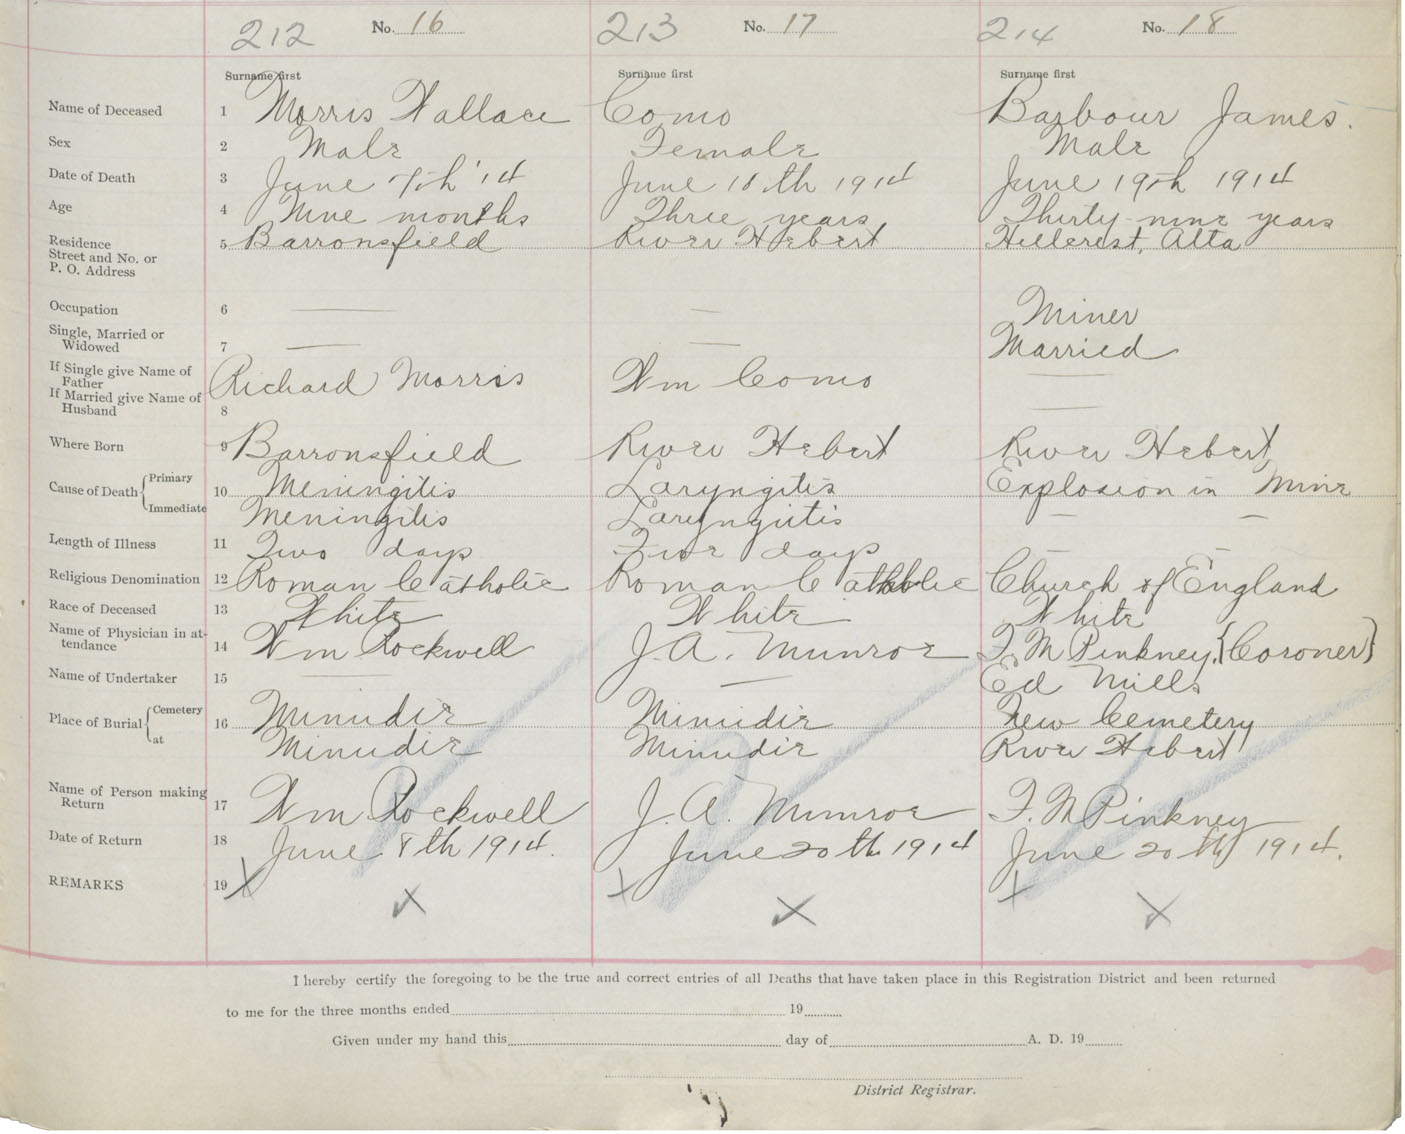 212 No. 16 213 No. 17 214 No. 18
Surname first Surname first Surname first
Name of Deceased 1 Morris Wallace Como Barbour James.
Sex 2 Male Female Male
Date of Death 3 June 7th '14 June 18th 1914 June 19th 1914
Age 4 Nine months Three years Thirty-nine years
Residence 5 Barronsfield River Hebert Hillcrest, Alta
Street and No. or
P. O. Address
Occupation 6 — — Miner
Single, Married or
Widowed 7 — — Married
If Single give Name of
Father Richard Morris Wm Como —
If Married give Name of
Husband 8 —
Where Born 9 Barronsfield River Hebert River Hebert
Cause of Death { Primary 10 Meningitis Laryngitis Explosion in Mine
Immediate Meningitis Laryngiitis — —
Length of Illness 11 Two days Five days — —
Religious Denomination 12 Roman Catholic Roman Catholic Church of England
Race of Deceased 13 White White White
Name of Physician in at-
tendance 14 Wm Rockwell J. A. Munroe F. M Pinkney, {Coroner}
Name of Undertaker 15 — — Ed Mills
Place of Burial { Cemetery 16 Minudie Minudie New Cemetery
at Minudie Minudie River Hebert
Name of Person making
Return 17 Wm Rockwell J. A. Munroe F. M Pinkney
Date of Return 18 June 8th 1914. June 20th 1914 June 20th, 1914.
REMARKS 19 X X X
X X X
I hereby certify the foregoing to be the true and correct entries of all Deaths that have taken place in this Registration District and been returned
to me for the three months ended 19
Given under my hand this day of A. D. 19
District Registrar.